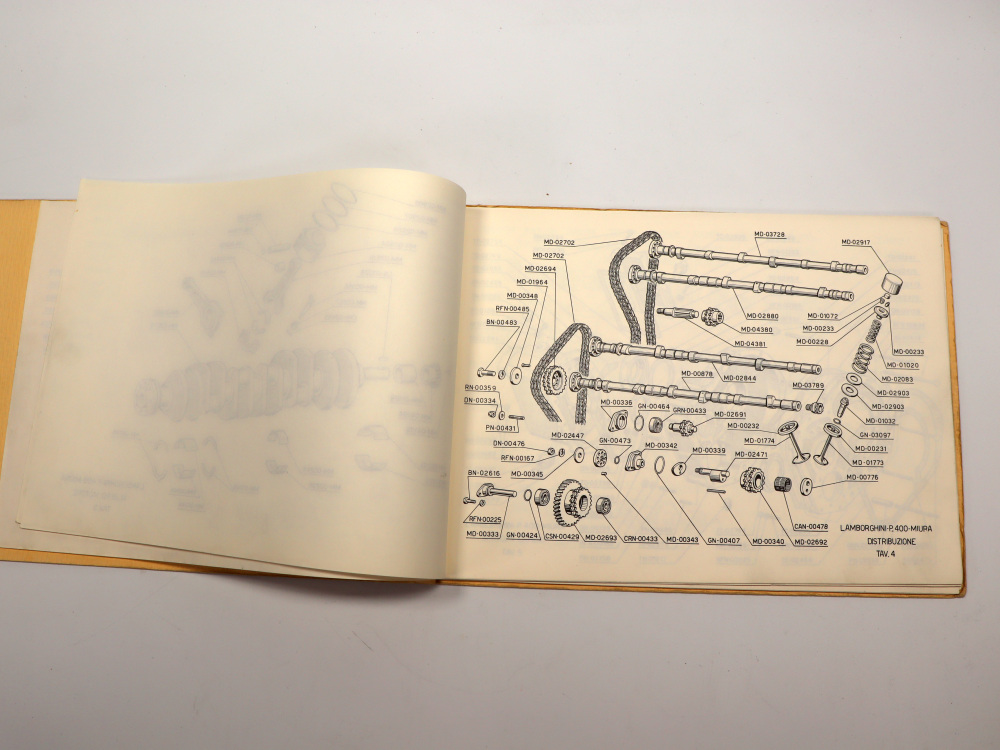 MD-02702
MD-03728
MD-02917
MD-02702
MD-02694
MD-01964
MD-00348
RFN-00485
BN-00483
MD-02880
MD-04380
MD-04381
MD-01072
MD-00233
MD-00228
MD-00233
MD-01020
MD-02083
MD-02903
MD-02903
MD-01032
GN-03097
MD-00231
MD-01773
MD-00776
MD-00878
MD-02844
MD-03789
RN-00359
DN-00334
PN-00431
MD-00336
GN-00464
GRN-00433
MD-02691
MD-00232
MD-01774
DN-00476
RFN-00167
MD-00345
MD-02447
GN-00473
MD-00342
MD-00339
MD-02471
BN-02616
RFN-00225
MD-00333
GN-00424
CSN-00429
MD-02693
CRN-00433
MD-00343
GN-00407
MD-00340
MD-02692
CAN-00478
LAMBORGHINI-P.400-MIURA
DISTRIBUZIONE
TAV. 4